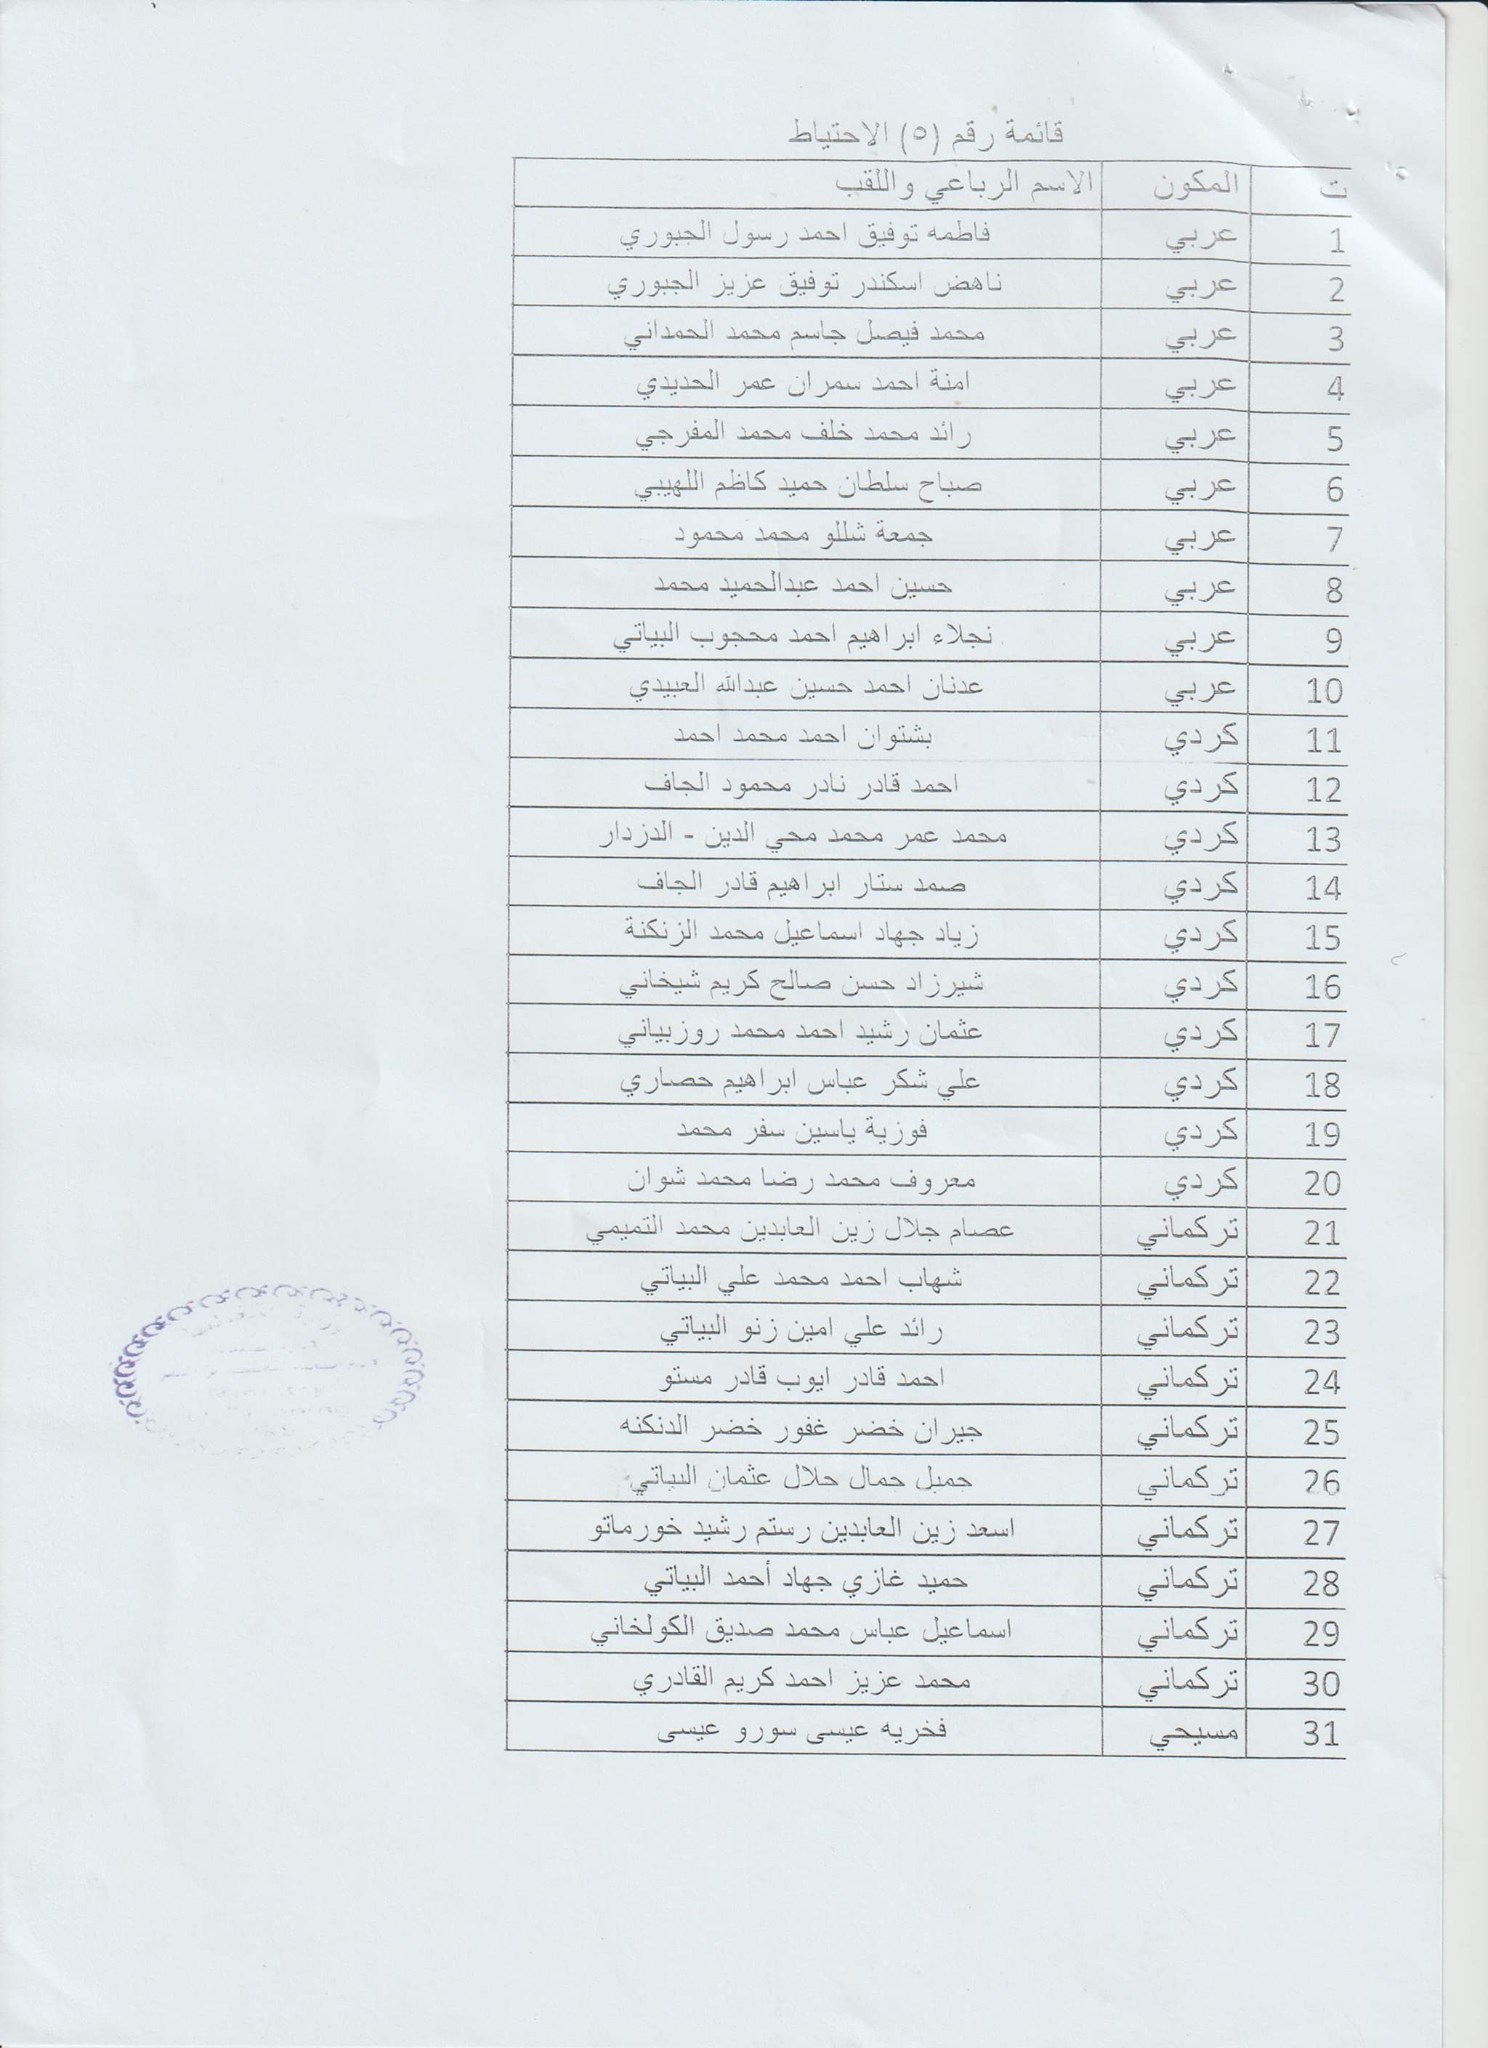 قائمة رقم (٥) الاحتياط
ت المكون الاسم الرباعي واللقب
1 عربي فاطمه توفيق احمد رسول الجبوري
2 عربي ناهض اسكندر توفيق عزيز الجبوري
3 عربي محمد فيصل جاسم محمد الحمداني
4 عربي امنة احمد سمران عمر الحديدي
5 عربي رائد محمد خلف محمد المفرجي
6 عربي صباح سلطان حميد كاظم اللهيبي
7 عربي جمعة شللو محمد محمود
8 عربي حسين احمد عبدالحميد محمد
9 عربي نجلاء ابراهيم احمد محجوب البياتي
10 عربي عدنان احمد حسين عبدالله العبيدي
11 كردي بشتوان احمد محمد احمد
12 كردي احمد قادر نادر محمود الجاف
13 كردي محمد عمر محمد محي الدين - الدزدار
14 كردي صمد ستار ابراهيم قادر الجاف
15 كردي زياد جهاد اسماعيل محمد الزنكنة
16 كردي شيرزاد حسن صالح كريم شيخاني
17 كردي عثمان رشيد احمد محمد روزبياني
18 كردي علي شكر عباس ابراهيم حصاري
19 كردي فوزية ياسين سفر محمد
20 كردي معروف محمد رضا محمد شوان
21 تركماني عصام جلال زين العابدين محمد التميمي
22 تركماني شهاب احمد محمد علي البياتي
23 تركماني رائد علي امين زنو البياتي
24 تركماني احمد قادر ايوب قادر مستو
25 تركماني جيران خضر غفور خضر الدنكنه
26 تركماني جميل جمال جلال عثمان البياتي
27 تركماني اسعد زين العابدين رستم رشيد خورماتو
28 تركماني حميد غازي جهاد أحمد البياتي
29 تركماني اسماعيل عباس محمد صديق الكولخاني
30 تركماني محمد عزيز احمد كريم القادري
31 مسيحي فخريه عيسى سورو عيسى